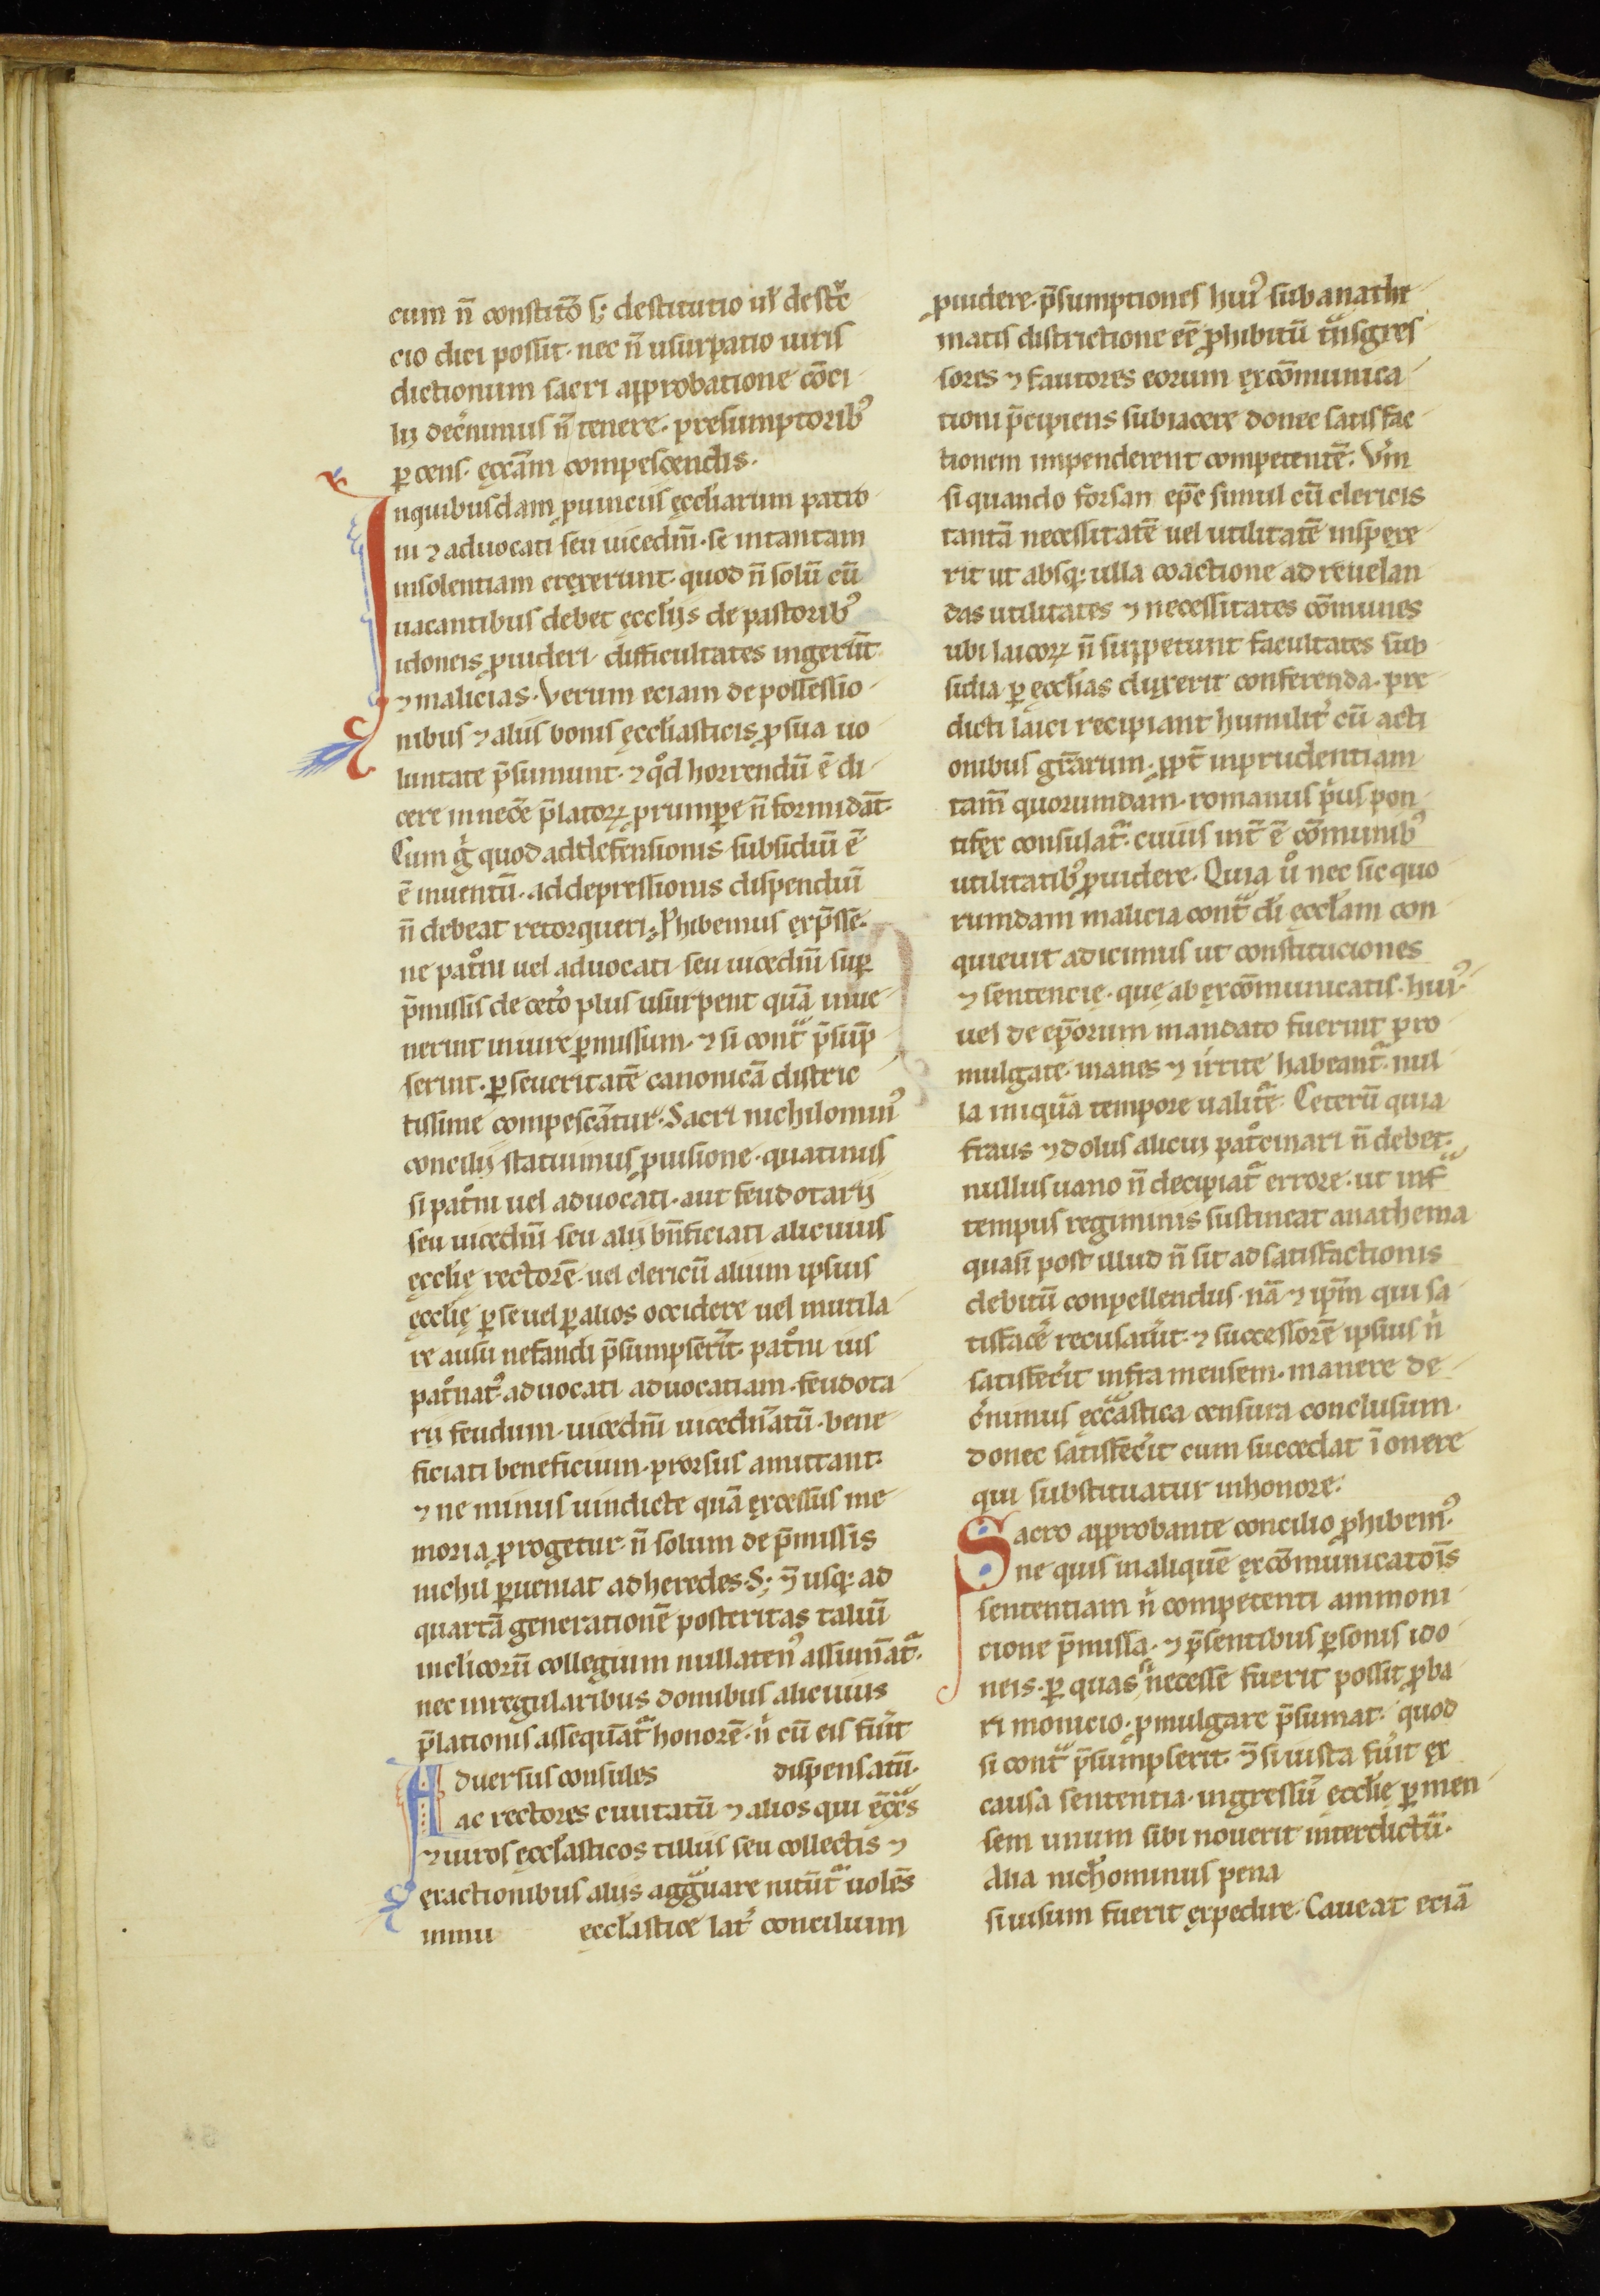 cum n̄ constitō s; destitutio ul̄ destͨͨ
cio dici possit· nec n̄ usurpatio iuris
dictionum sacri approbatione cōci
lij decͥnimus n̄ tenere· presumptoribꝰ
ꝑ cens· ęccāͥm compescendis·
Inquibusdam ꝓuinciis ęccl̄iarum patro
ni ⁊ aduocati seu uicedn̄i· se intantam
insolentiam erexerunt· quod n̄ solū cū
uacantibus debet ęccl̄ijs de pastoribꝰ
idoneis ꝓuideri difficultates ingerūt
⁊ malicias· Verum eciam de possessio
nibus ⁊ aliis bonis ęccl̄iasticis ꝓ sua uo
luntate p̄sumunt· ⁊ qͦd horrendū ē di
cere in necē p̄latoꝝ ꝓrumꝑe n̄ formidāt·
Cum gͥ quod addefensionis subsidiū ē
ē inuentū· addepressionis dispendiū
n̄ debeat retorqueri· ꝓhibemus exp̄sse·
ne patͦni uel aduocati seu uicedn̄i suꝑ
p̄missis de cetͦo plus usurpent quā inue
nerint iniure ꝑmissum· ⁊ si contͣ p̄sūp̄
serint· ꝑ seueritatē canonicā distric
tissime compescātur· Sacri nichilominꝰ
concilij statuimus ꝓuisione· quatinus
si patͦni uel aduocati· aut feudotarij
seu uicedn̄i seu alij bn̄ficiati alicuius
ęccl̄ię rectorē· uel clericū alium ipsius
ęccl̄ię ꝑ se uel ꝑ alios occidere uel mutila
re ausu nefandi p̄sumpserīt· patͦni ius
patͦnatꝰ· aduocati aduocatiam· feudota
rij feudum· uicedn̄i uicedn̄atū· bene
ficiati beneficium· prorsus amittant·
⁊ ne minus uindicte quā excessus me
moria ꝓrogetur· n̄ solum de p̄missis
nichil ꝑueniat ad heredes· S; ⁊ usqꝫ ad
quartā generationē posteritas taliū
inclicorū collegium nullatenꝰ assumātͬ·
nec inregularibus domibus alicuius
p̄lationis assequātͬ honorē· nͥ cū eis fuīt
Aduersus consules dispensatū·
ac rectores ciuitatū ⁊ alios qui ęc̄cͣs
⁊ uiros ęccl̄asticos tillus seu collectis ⁊
exactionibus aliis aggͣuare nitūtͬ uolēs
inmu ęccl̄astice latͦ concilium
ꝓuidere· p̄sumptiones huiꝰ sub anathe
matis districtione eē ꝓhibitū tͣnsgres
sores ⁊ fautores eorum excōmunica
tioni p̄cipiens subiacere donec satisfac
tionem impenderent competentē· Vͦm
si quando forsan ep̄c simul cū clericis
tantā necessitatē uel utilitatē insꝑexe
rit ut absqꝫ ulla coactione ad reuelan
das utilitates ⁊ necessitates cōmunes
ubi laicoꝝ n̄ suppetunt facultates sub
sidia ꝑ ęccl̄ias duxerit conferenda· pre
dicti laici recipiant humilitͦ cū acti
onibus gr̄arum· ꝓpt̄ inprudentiam
tam̄ quorumdam· romanus pͥus pon
tifex consulatͬ· cuius int̄ ē cōmunibꝰ
utilitatibꝰ ꝓuidere· Quia uͦ nec sic quo
rumdam malicia contͣ di ęccl̄am con
quieuit adicimus ut constituciones
⁊ sentencię· que ab excōmunicatis· huiꝰ
uel de ep̄orum mandato fuerint pro
mulgate· inanes ⁊ irͥte habeantͬ· nul
la iniqūa tempore ualitͬe· Ceterū quia
fraus ⁊ dolus alicui patͦcinari n̄ debet·
nullus uano n̄ decipiatͬ errore· ut infͣ
tempus regiminis sustineat anathema
quasi post illud n̄ sit ad satisfactionis
debitū conpellendus· nā ⁊ ip̄m qui sa
tisfacͤ recusauͥt· ⁊ successorē ipsius nͥ
satisfecͥit infra mensem· manere de
cͥnimus ęccͣastica censura conclusum·
donec satisfecͥit cum succedat ī onere
qui substituatur inhonore·
Sacro approbante concilio ꝓhibemꝰ
ne quis in aliquē excōmunicatōis
sententiam nͥ competenti ammoni
cione p̄missa· ⁊ p̄sentibus ꝑsonis ido
neis· ꝑ quas si necesse fuerit possit ꝓba
ri monicio· ꝓmulgare p̄sumat· quod
si contͣ p̄sumpserit· ⁊ si iusta fuͦit ex
causa sententia· ingressū ęccl̄ię ꝑ men
sem unum sibi nouerit interdictū·
Alia nichͦominus pena
si uisum fuerit expedire· Caueat eciā